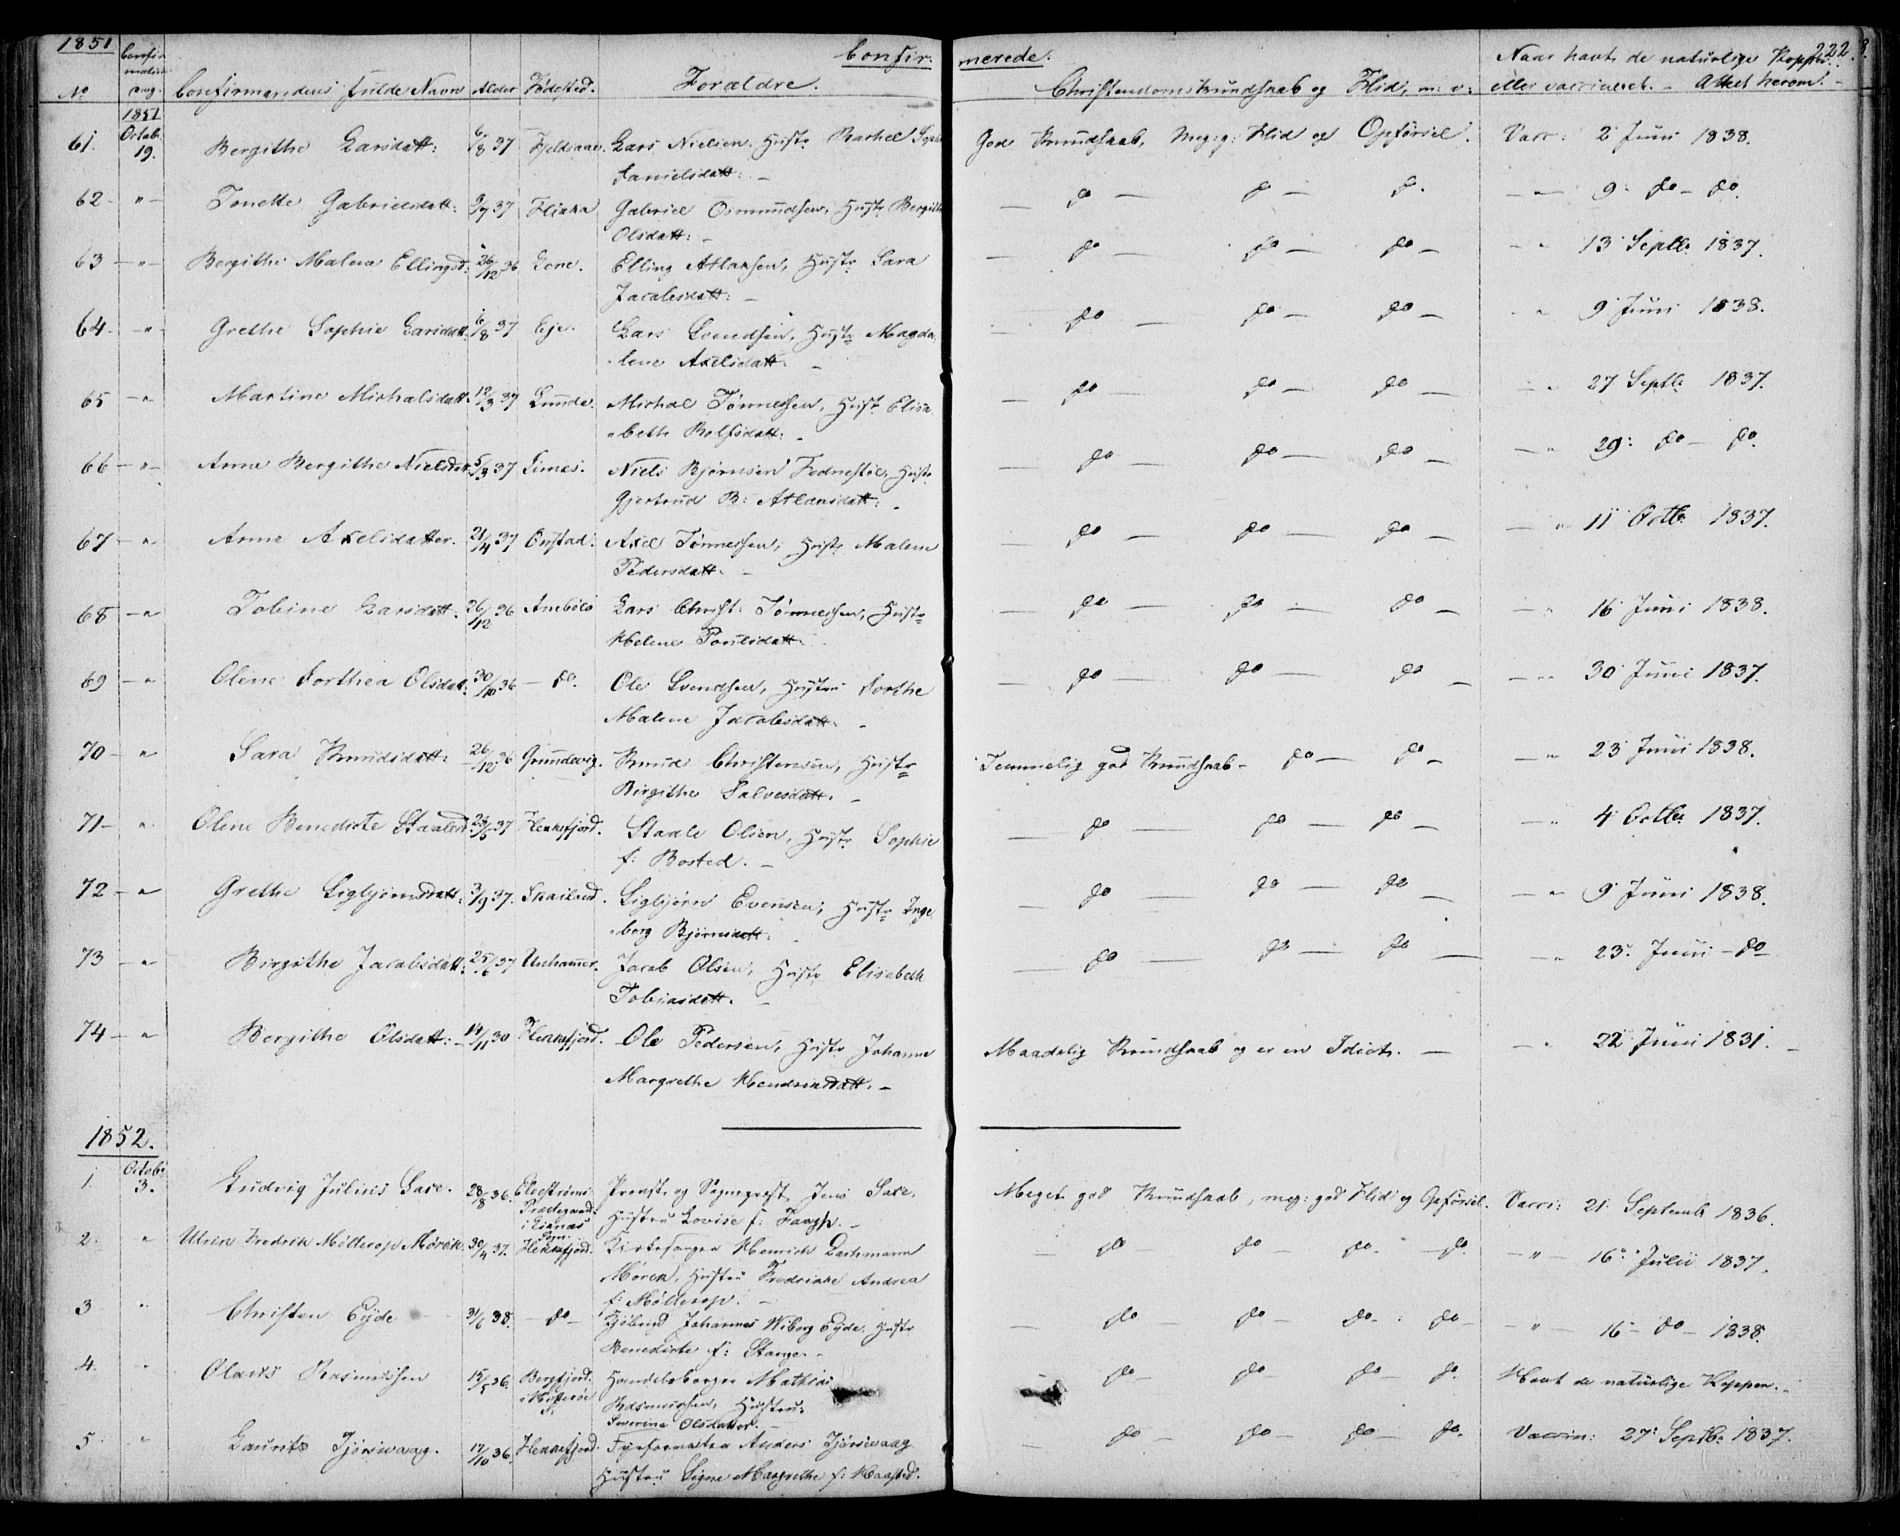 1851
Confirmerede.
222.
No
Confirmations Dag.
Confirmandens fulde Navn
Alder
Fødested.
Forældre.
Christendomskundskab og Flid, m: v:
Naar havt de naturlige Kopper eller vaccineret. - Attest herom. -
1851
61. Octob. 19. Bergithe Larsdatt: 6/8 37 Lars Nielsen, Hustr Rachel Sophie
Danielsdatt: -
God Kundskab, meg: g: Flid og Opførsel. Vacc: 2 Juni 1838.
62 - " - Tonette Gabrielsdatt: 9/7 37 Flikka Gabriel Osmundsen, Hustr Bergithe
Olsdatt: -
- do - do - do. - " 9: do - do.
63 - " - Bergithe Malena Ellingsd: 26/12 36 Lone. Elling Atlaksen, Hustr Sara
Jacobsdatt: -
- do - do - do - - " 13 Septbr 1837.
64. - " - Grethe Sophie Larsdatt. 6/8 37 Eje. Lars Svendsen, Hustr Magda
lene Axelsdatt. -
- do - do - do - " 9 Juni 1838.
65 - " Martine Michalsdatt. 12/3 37 Lunde. Michal Tønnessen, Hust. Elisa
beth Rolfsdatt: -
- do - do - do - " 27 Septbr 1837.
66 - " - Anne Bergithe Nielsdtr 5/3 37 Simes. Niels Bjørnsen Fednestøl, Hustr
Gjertrud B: Atlaksdatt: -
- do - do - do - - " 29: do - do.
67 - " Anne Axelsdatter. 21/4 37 Onstad. Axel Tønnessen, Hustr Malene
Pedersdatt. -
- do - do - do - - " 11 Octbr 1837.
68 - " Tobine Larsdatt. 26/12 36 Ambolo Lars Christ: Tønnessen, Hustr
Helene Poulsdatt.
- do - do - do - - " 16 Juni 1838.
69 - " Olene Dorthea Olsdatt: 30/10 36 - do. Ole Svendsen, Hustru Dorthe
Malene Jacobsdatt. -
- do - do - do - - " 30 Juni 1837.
70 - " Sara Knudsdatt: 26/12 36 Grundevig. Knud Christensen, Hustr
Birgithe Salvesdatt. -
Temmelig god Kundskab - do - do - - " 23 Juni 1838.
71 - " Olene Benedicte Staalesd 37 Flekkefjord. Staale Olsen, Hustr Sophie
f: Bosted. -
- do - do - do - - " 4 Octbr 1837.
72 - " Grethe Sigbjørnsdatt. 3/9 37. Skailand. Sigbjørn Evensen, Hustr Inge
borg Bjørnsdatt.
- do - do - do - - " 9 Juni 1838.
73 - " Birgithe Jacobsdatt: 25/6 37 Unhamer. Jacob Olsen, Hustr Elisabeth
Tobiasdatt. -
- do - do - do - - " 23. Juni - do
74 - " Bergithe Olsdatt: 14/11 30 Flekkefjord. Ole Pedersen, Hustr Johanne
Margrethe Hendriksdatt. -
Maadelig Kundskab og er en Idiot. - - " 22 Juni 1831. -
1852.
1. Octob. 3. Ludvig Julius Saxe. 28/8 36.
Præstegaard i
Provst og Sognepræst Jens Saxe,
Hustru Lovise f:
Meget god Kundskab, meg: god Flid og Opførsel. Vacci: 21 Septemb 1836.
2. " Ulrik Fredrik Møllerop Mørck 30/4 37. Flekkefjord. Kirkesanger Henrich Dachmann
Mørck, Hustru Fredrikke Andrea
f: Møllerop. -
- do - do - do - do. - " - 16 Julii 1837.
3 " Christen Eyde 31/ 38. - do - Johannes Wiborg Eyde. Hustr
Benedicte f: Stange. -
- do - do - do - do - - " - 16 - do - 1838.
4. " Olaus Rasmussen 15/5 36. Bergfjord Handelsborger Mathias
Rasmussen, Hustru:
Severine Olsdatter. -
do - do - do do. - Havt de naturlige Kopper. -
5 " Laurits Tjørswaag. 17/10 36. Flekkefjord. Anders Tjørswaag
Hustru Signe Margrethe f: Haasted.
- do - do - do - do. Vaccin: 27 Septbr 1837.